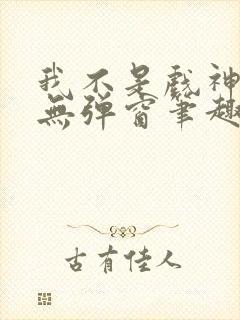 我不是戲神
無彈窗筆趣
古有佳人